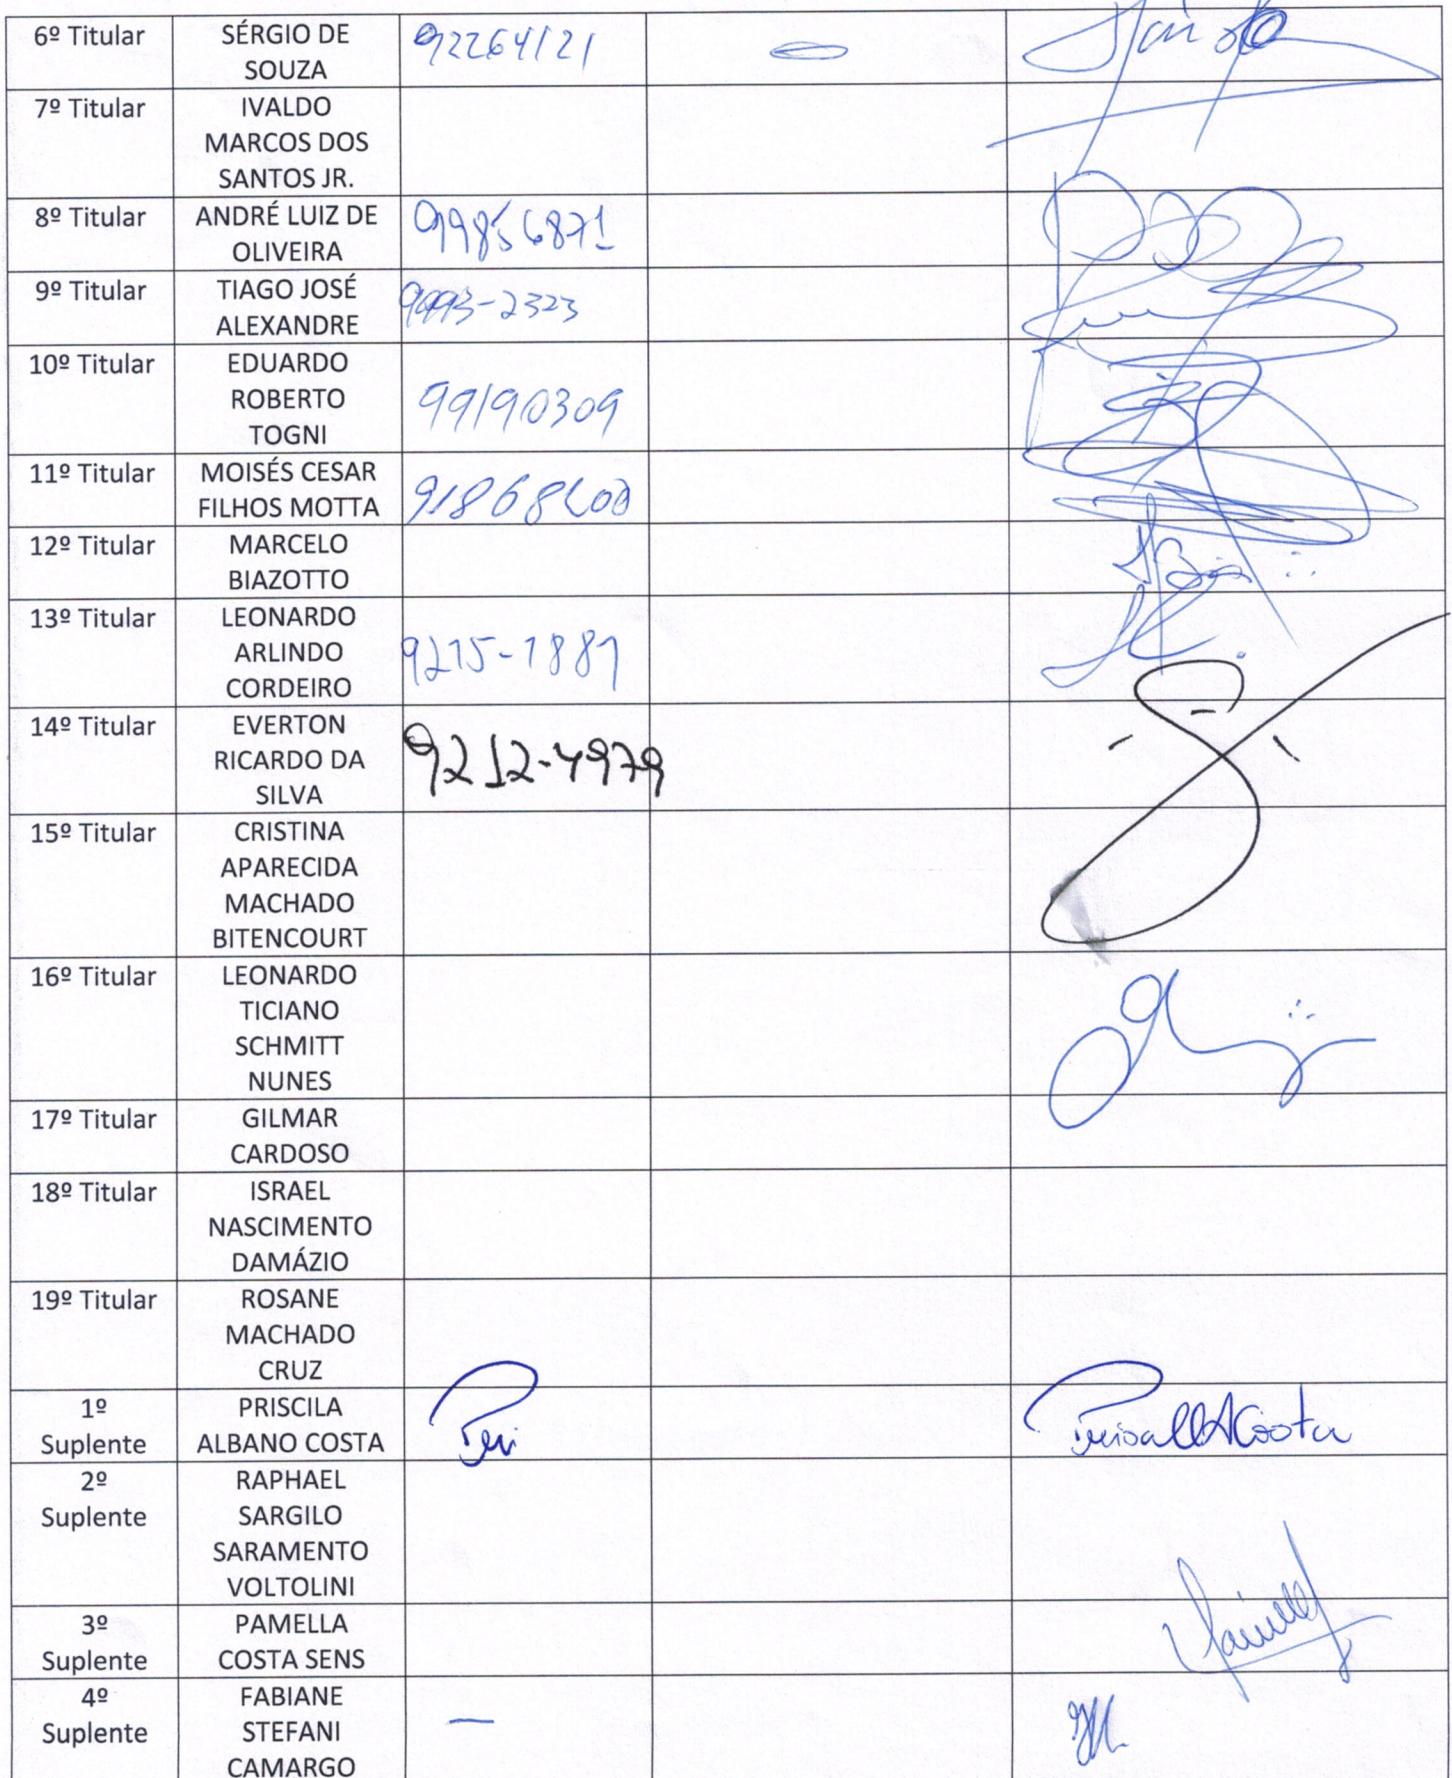 6º Titular
SÉRGIO DE
SOUZA
92264121
7º Titular
IVALDO
MARCOS DOS
SANTOS JR.
8º Titular
ANDRÉ LUIZ DE
OLIVEIRA
99856871
9º Titular
TIAGO JOSÉ
ALEXANDRE
10º Titular
EDUARDO
ROBERTO
TOGNI
99190309
11º Titular
MOISÉS CESAR
FILHOS MOTTA
12º Titular
MARCELO
BIAZOTTO
13º Titular
LEONARDO
ARLINDO
CORDEIRO
9215-1881
14º Titular
EVERTON
RICARDO DA
SILVA
9212-4979
15º Titular
CRISTINA
APARECIDA
MACHADO
BITENCOURT
16º Titular
LEONARDO
TICIANO
SCHMITT
NUNES
17º Titular
GILMAR
CARDOSO
18º Titular
ISRAEL
NASCIMENTO
DAMÁZIO
19º Titular
ROSANE
MACHADO
CRUZ
1º
Suplente
PRISCILA
ALBANO COSTA
2º
Suplente
RAPHAEL
SARGILO
SARAMENTO
VOLTOLINI
3º
Suplente
PAMELLA
COSTA SENS
4º
Suplente
FABIANE
STEFANI
CAMARGO